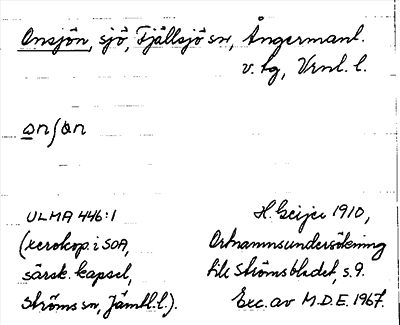 Onsjön, sjö, Fjällsjö sn, Ångermanl.
v. tg, Vrnl. l.
ULMA 446:1
(xerokop. i SOA,
särsk. kapsel,
Ströms sn, Jämtl. l.).
H. Geijer 1910,
Ortnamnsundersökning
till Strömsbladet, s. 9.
Exc. av M.D.E. 1967.